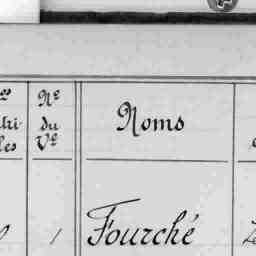 Nº du Vº
Noms
1
Fourché